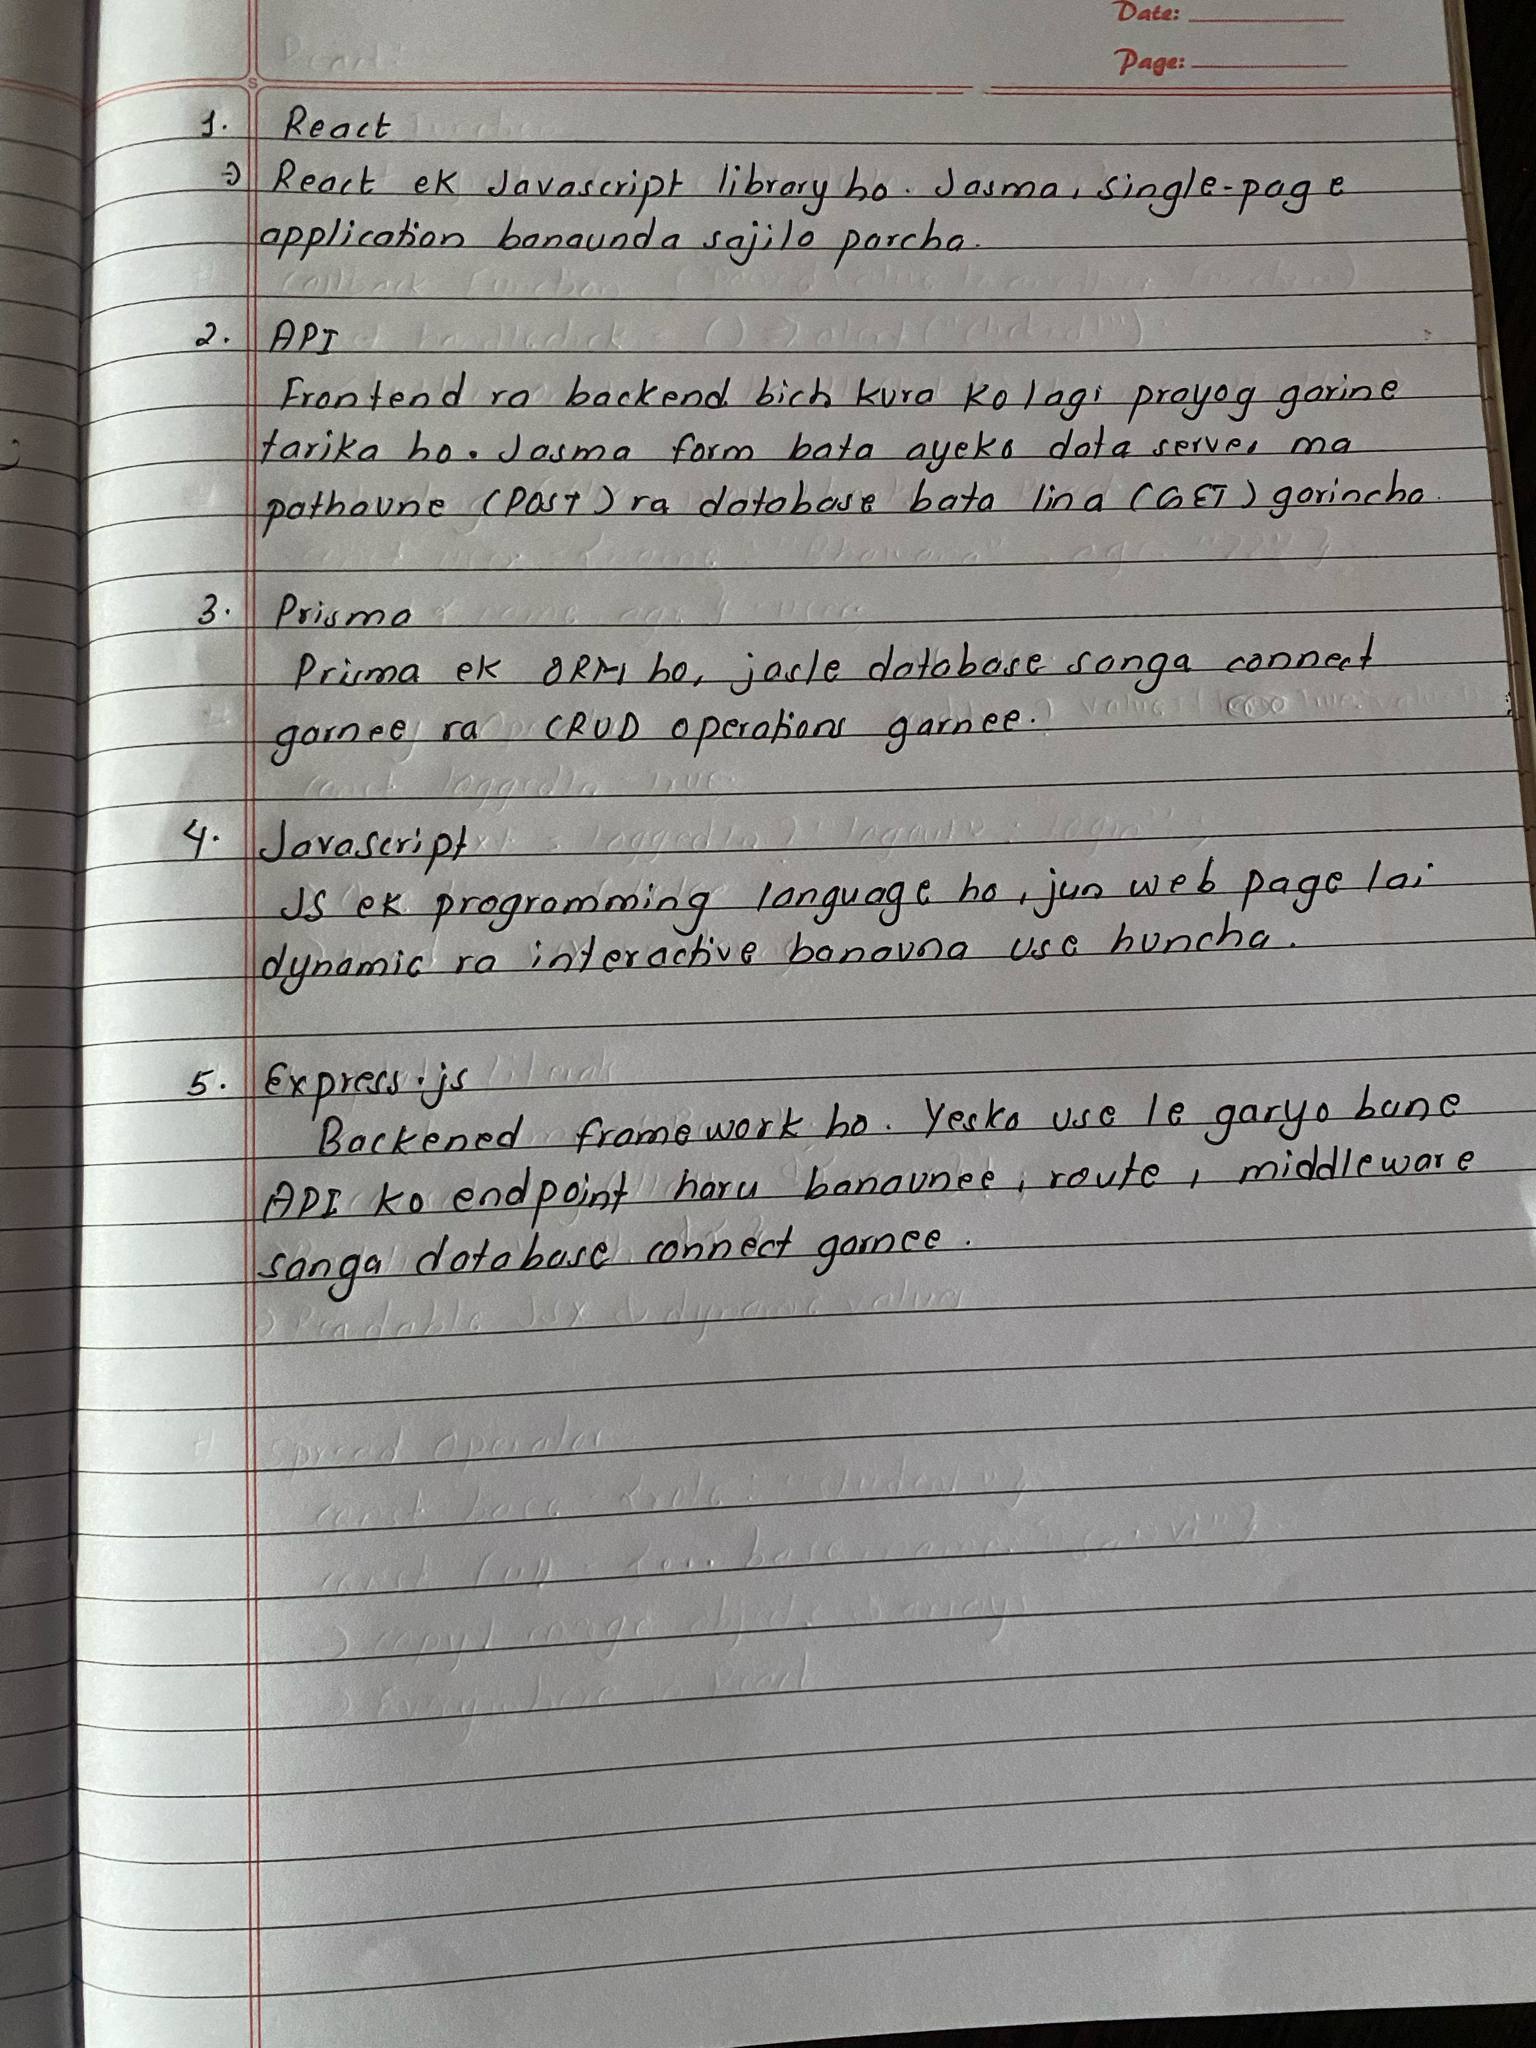 Date:
Page:
1. React
=> React ek Javascript library ho. Jasma, single-page
application banaunda sajilo parcha.
2. API
Frontend ra backend bich kura ko lagi prayog garine
tarika ho. Jasma form bata ayeko data server ma
pathaune (POST) ra database bata lina (GET) garincha.
3. Prisma
Prisma ek ORM ho, jasle database sanga connect
garnee ra CRUD operations garnee.
4. Javascript
JS ek programming language ho, jun web page lai
dynamic ra interactive banauna use huncha.
5. Express.js
Backened framework ho. Yesko use le garyo bane
API ko endpoint haru banaunee, route, middleware
sanga database connect garnee.